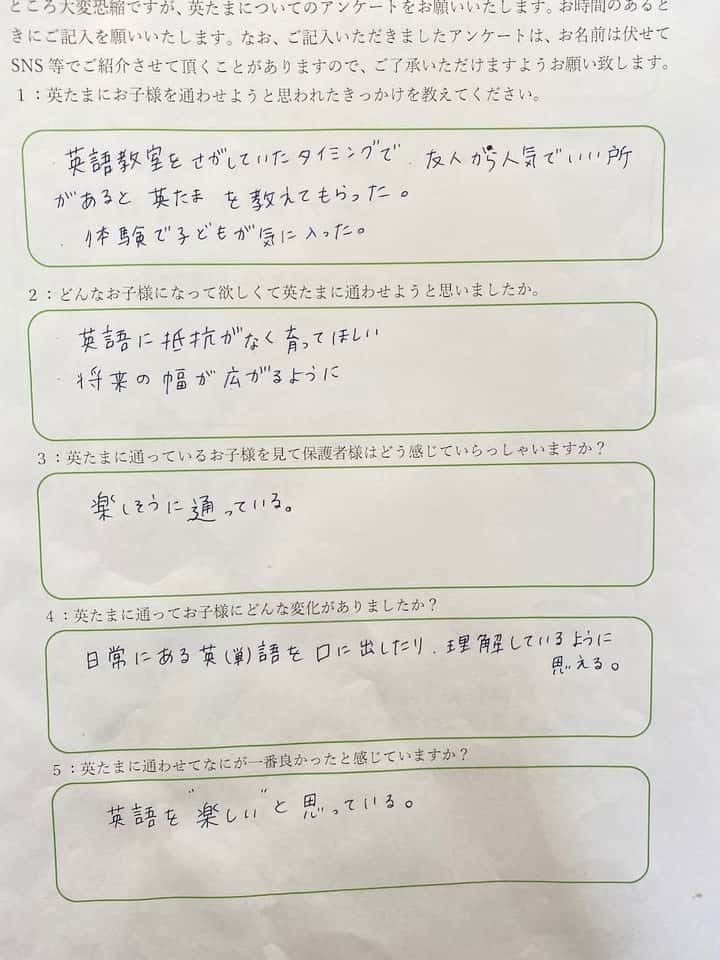 ところ大変恐縮ですが、英たまについてのアンケートをお願いいたします。お時間のあると
きにご記入を願いいたします。なお、ご記入いただきましたアンケートは、お名前は伏せて
SNS等でご紹介させて頂くことがありますので、ご了承いただけますようお願い致します。
1：英たまにお子様を通わせようと思われたきっかけを教えてください。
・英語教室をさがしていたタイミングで、友人から人気でいい所
があると英たまを教えてもらった。
・体験で子どもが気に入った。
2：どんなお子様になって欲しくて英たまに通わせようと思いましたか。
・英語に抵抗がなく育ってほしい
・将来の幅が広がるように
3：英たまに通っているお子様を見て保護者様はどう感じていらっしゃいますか？
楽しそうに通っている。
4：英たまに通ってお子様にどんな変化がありましたか？
日常にある英(単)語を口に出したり、理解しているように
思える。
5：英たまに通わせてなにが一番良かったと感じていますか？
英語を"楽しい"と思っている。